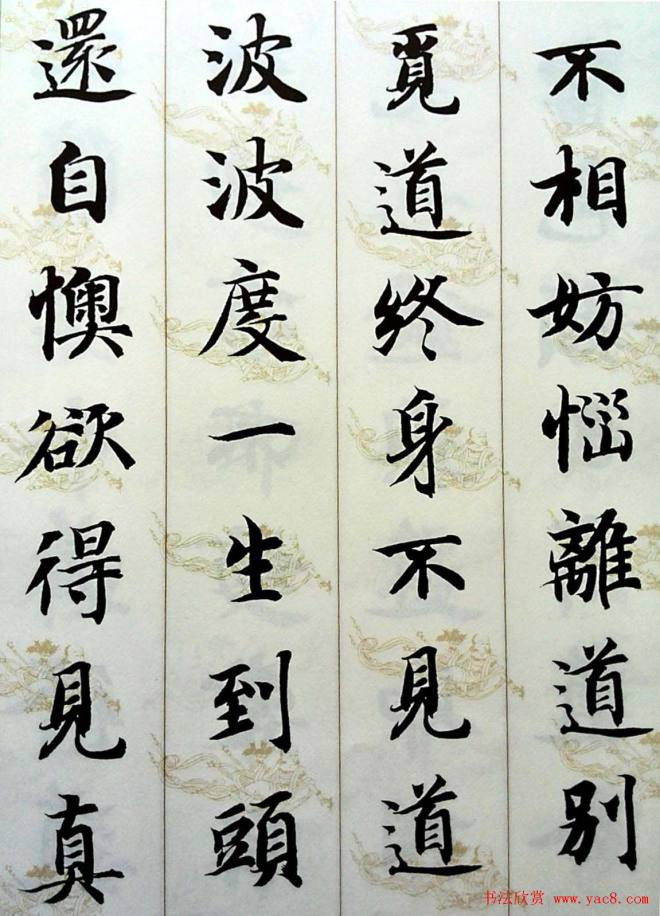 不相妨惱離道別
覓道終身不見道
波波度一生到頭
還自懊欲得見真
书法欣赏 www.yac8.com